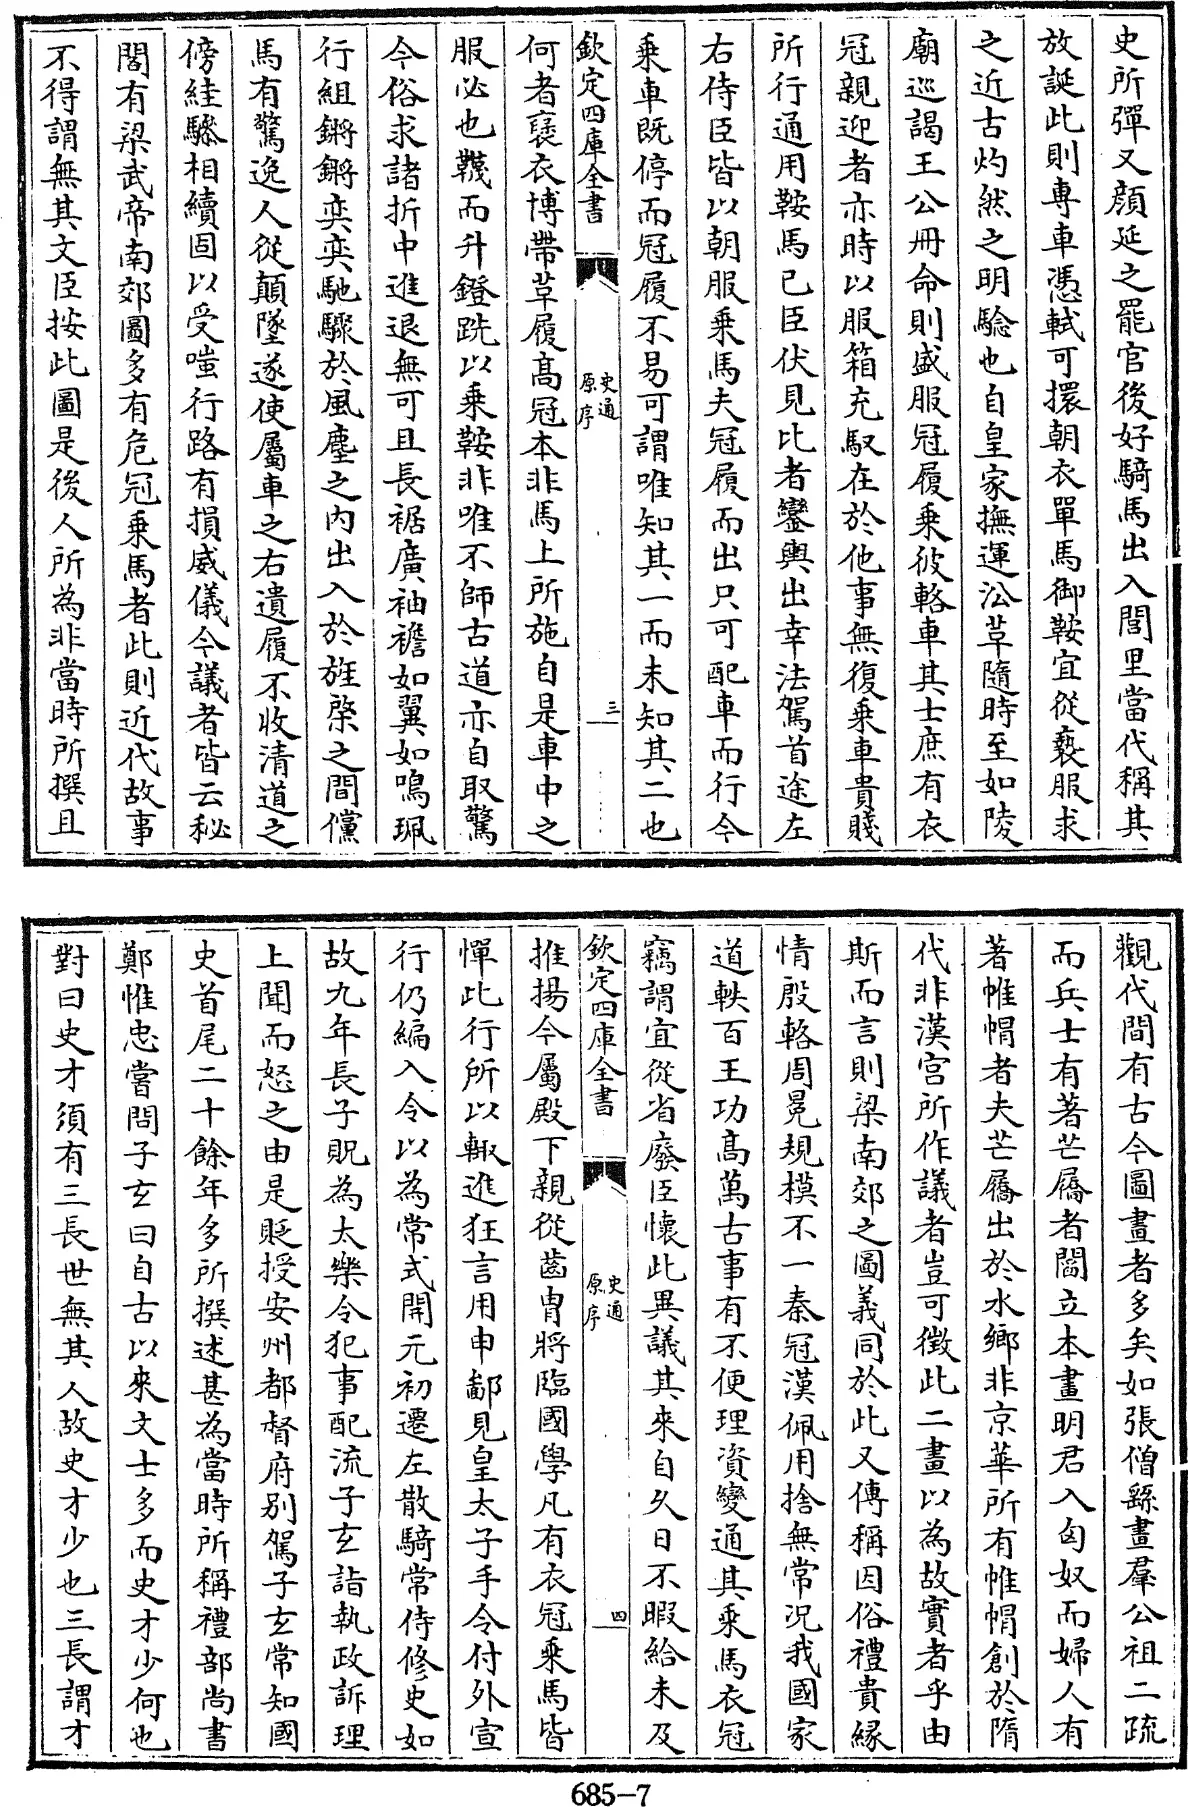 史所彈又顔延之罷官後好騎馬出入閭里當代稱其
放誕此則專車憑軾可擐朝衣單馬御鞍宜從褻服求
之近古灼然之明驗也自皇家撫運沿革隨時至如陵
廟巡謁王公冊命則盛服冠履乘彼輅車其士庶有衣
冠親迎者亦時以服箱充馭在於他事無復乘車貴賤
所行通用鞍馬已臣伏見比者鑾輿出幸法駕首途左
右侍臣皆以朝服乘馬夫冠履而出只可配車而行今
乘車既停而冠履不易可謂唯知其一而未知其二也
欽定四庫全書
史通
原序
三
何者褒衣博帶革履高冠本非馬上所施自是車中之
服必也韈而升鐙跣以乘鞍非唯不師古道亦自取驚
今俗求諸折中進退無可且長裾廣袖襜如翼如鳴珮
行組鏘鏘奕奕馳驟於風塵之内出入於旌棨之間儻
馬有驚逸人從顛墜遂使屬車之右遺履不收清道之
傍絓驂相續固以受嗤行路有損威儀今議者皆云秘
閣有梁武帝南郊圖多有危冠乘馬者此則近代故事
不得謂無其文臣按此圖是後人所為非當時所撰且
觀代間有古今圖畫者多矣如張僧繇畫羣公祖二疏
而兵士有著芒屩者閻立本畫明君入匈奴而婦人有
著帷帽者夫芒屩出於水鄉非京華所有帷帽創於隋
代非漢宫所作議者豈可徵此二畫以為故實者乎由
斯而言則梁南郊之圖義同於此又傳稱因俗禮貴緣
情殷輅周冕規模不一秦冠漢佩用捨無常況我國家
道軼百王功高萬古事有不便理資變通其乘馬衣冠
竊謂宜從省廢臣懐此異議其來自久日不暇給未及
欽定四庫全書
史通
原序
四
推揚今屬殿下親從齒胄將臨國學凡有衣冠乘馬皆
憚此行所以輙進狂言用申鄙見皇太子手令付外宣
行仍編入令以為常式開元初遷左散騎常侍修史如
故九年長子貺為太樂令犯事配流子玄詣執政訴理
上聞而怒之由是貶授安州都督府别駕子玄常知國
史首尾二十餘年多所撰述甚為當時所稱禮部尚書
鄭惟忠嘗問子玄曰自古以來文士多而史才少何也
對曰史才須有三長世無其人故史才少也三長謂才
685-7